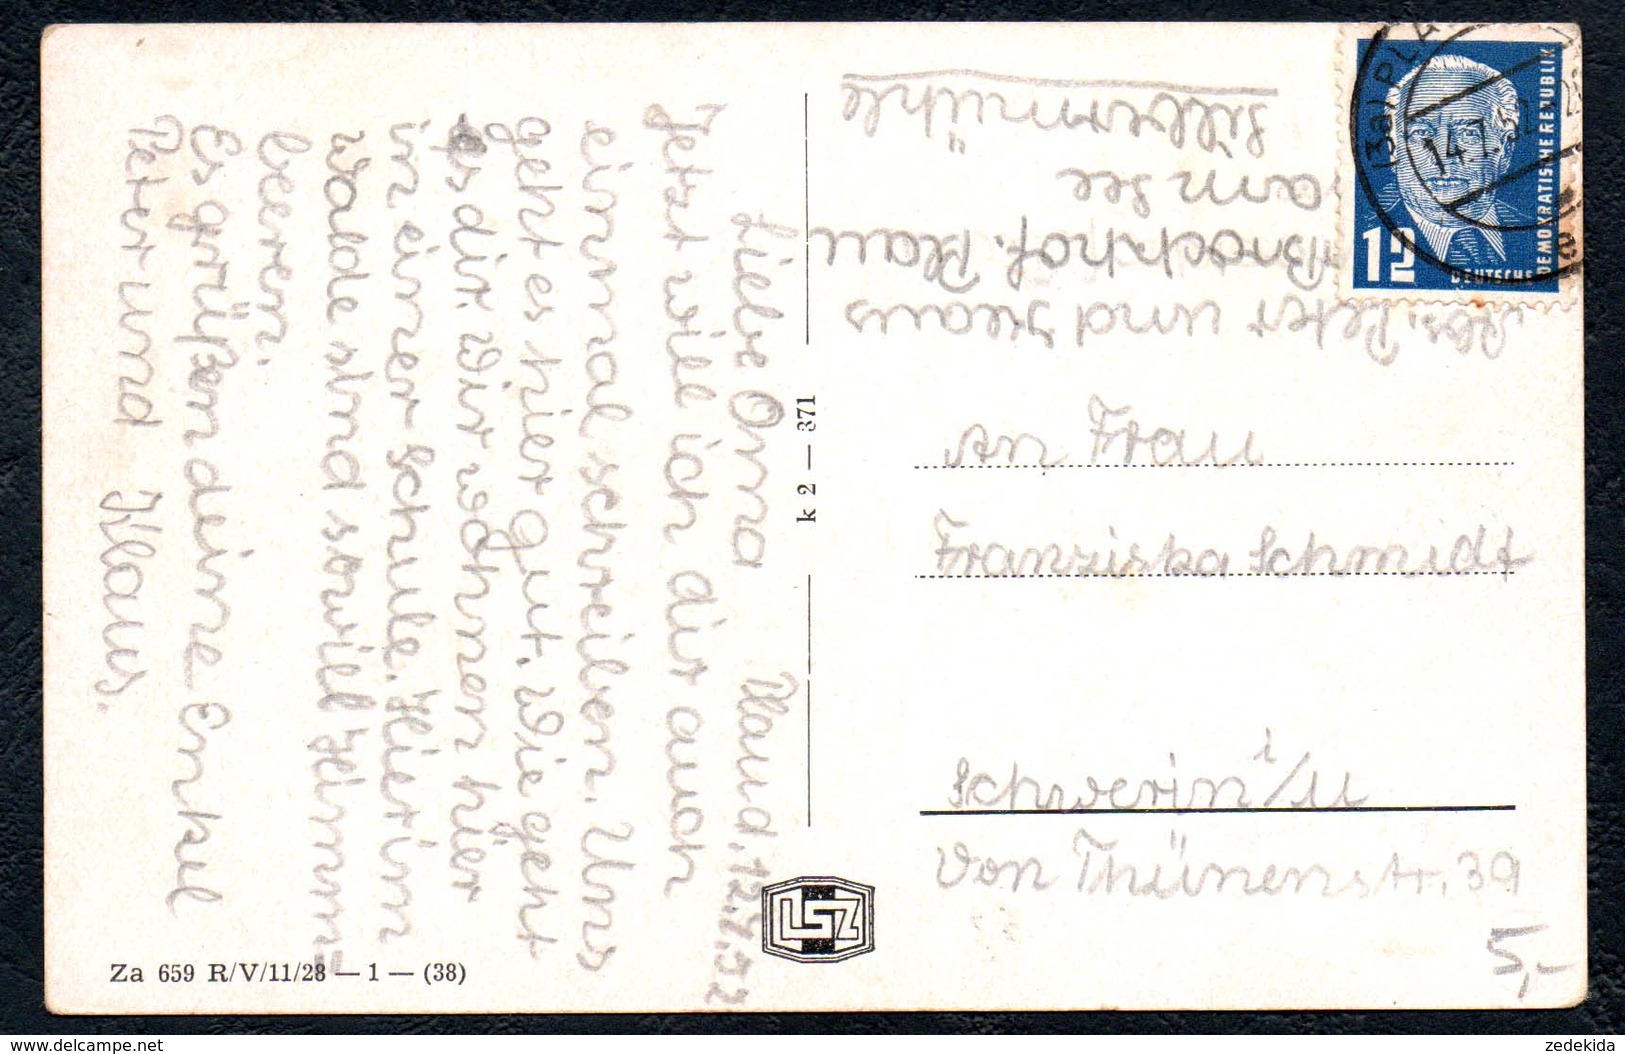 Liebe Oma Plaud. 12.7.52
Jetzt will ich dir auch
einmal schreiben. Uns
geht es hier gut. Wie geht
es dir. Wir wohnen hier
in einer Schule. Hier im
Walde sind soviel Himm-
beeren.
Es grüßen deine Enkel
Peter und Klaus.
Abs. Peter und Klaus
Brochhof. Plau
am See
Silbermühle
An Frau
Franziska Schmidt
Schwerin i/M
Von Thünenstr. 39
5,-
k 2 — 371
LSZ
Za 659 R/V/11/28 — 1 — (38)
12
DEUTSCHE
DEMOKRATISCHE REPUBLIK
(3a) PLA
14.7.52
www.delcampe.net
zedekida